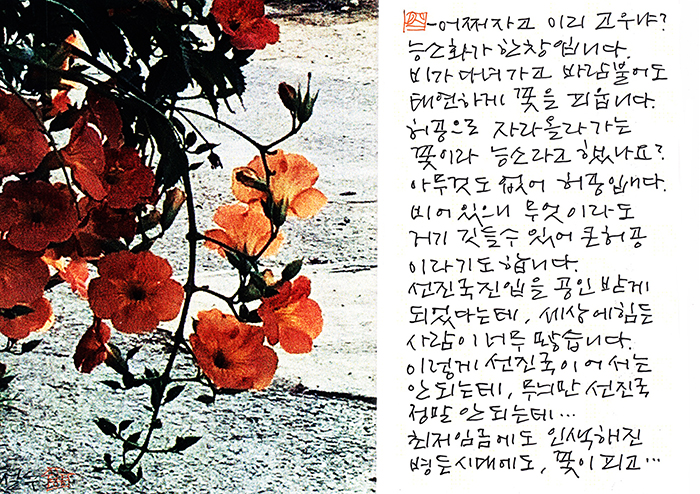 -어쩌자고 이리 고우냐?
능소화가 한창입니다.
비가 다녀가고 바람불어도
태연하게 꽃을 피웁니다.
허공으로 자라올라가는
꽃이라 능소라고 했나요?
아무것도 없어 허공입니다.
비어 있으니 무엇이라도
거기 깃들수 있어 큰허공
이라기도 합니다.
선진국진입을 공인받게
되었다는데, 세상에 힘든
사람이 너무 많습니다.
이렇게 선진국이어서는
안되는데, 무늬만 선진국
정말 안 되는데...
최저임금에도 인색해진
병든시대에도, 꽃이 피고...